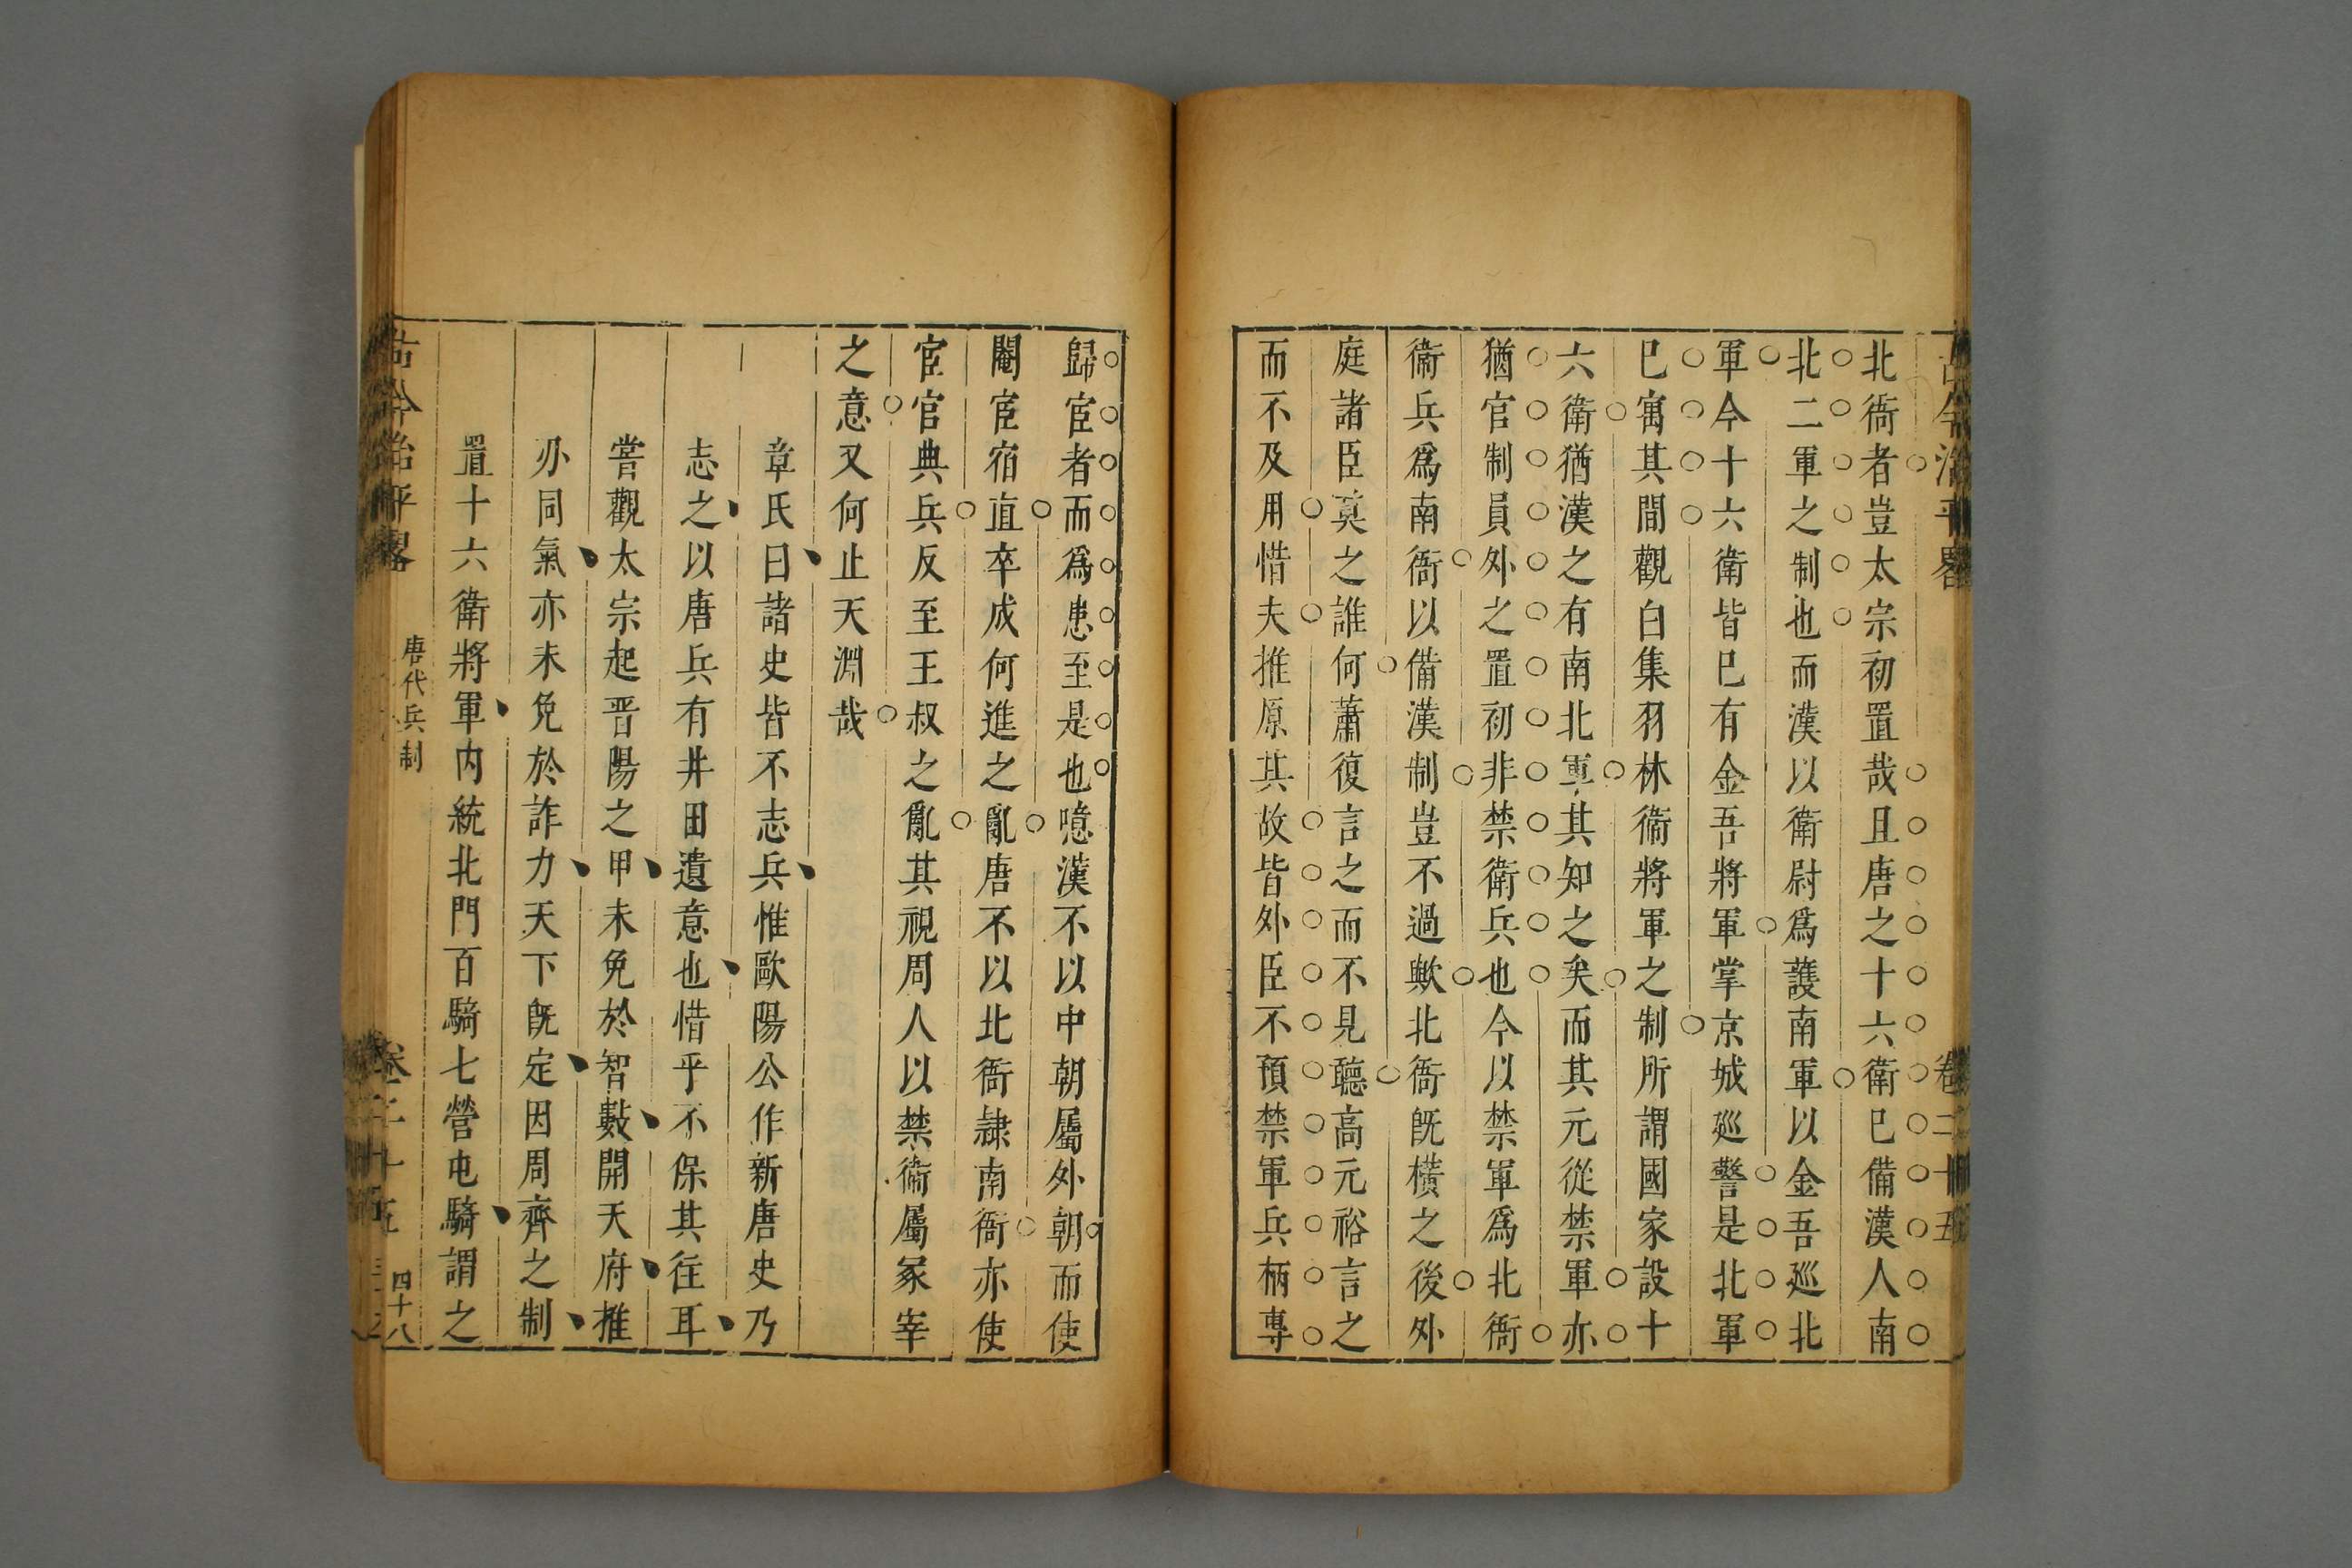 古今治平畧 卷二十五
北衙者豈太宗初置哉且唐之十六衛已備漢人南
北二軍之制也而漢以衛尉爲護南軍以金吾廵北
軍今十六衛皆已有金吾將軍掌京城廵警是北軍
已寓其間觀白集羽林衛將軍之制所謂國家設十
六衛猶漢之有南北軍其知之矣而其元從禁軍亦
猶官制員外之置初非禁衛兵也今以禁軍爲北衙
衛兵爲南衙以備漢制豈不過歟北衙既橫之後外
庭諸臣莫之誰何蕭復言之而不見聽高元裕言之
而不及用惜夫推原其故皆外臣不預禁軍兵柄專
歸宦者而爲患至是也噫漢不以中朝屬外朝而使
閹宦宿直卒成何進之亂唐不以北衙隷南衙亦使
宦官典兵反至王叔之亂其視周人以禁衛屬冢宰
之意又何止天淵哉
章氏曰諸史皆不志兵惟歐陽公作新唐史乃
志之以唐兵有井田遺意也惜乎不保其往耳
嘗觀太宗起晋陽之甲未免於智數開天府推
刅同氣亦未免於詐力天下既定因周齊之制
置十六衛將軍内統北門百騎七營屯騎謂之
古今治平畧 唐代兵制 卷二十五 四十八